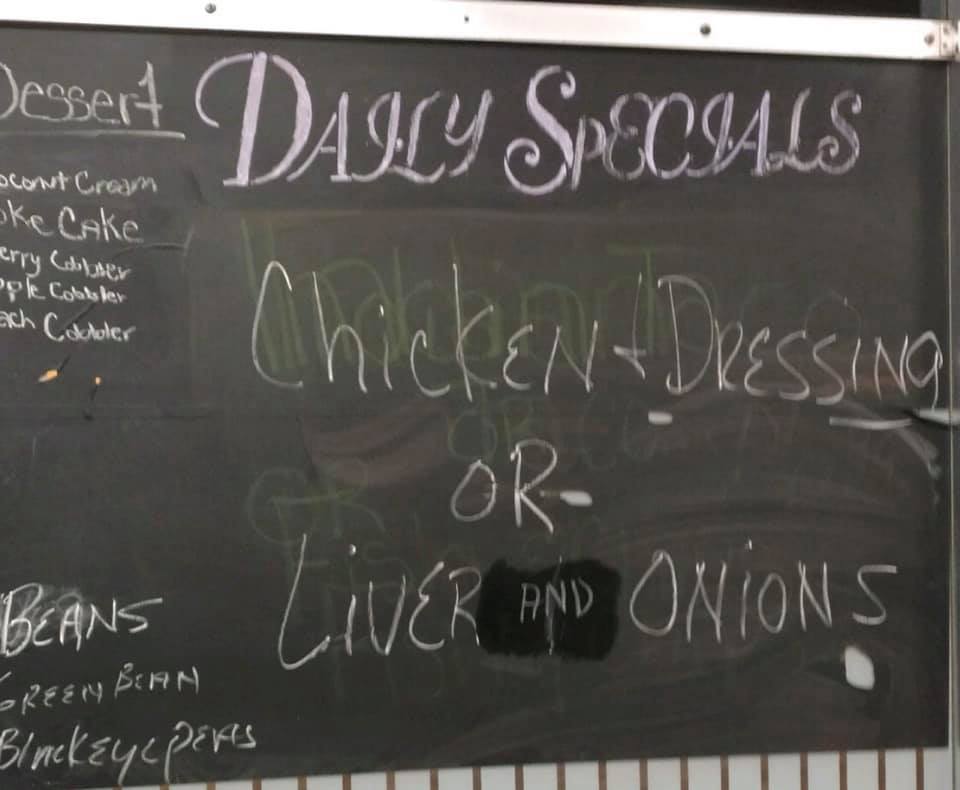 Dessert
oconut Cream
oke CAKE
erry Cobbler
pple Cobbler
each Cobbler
BEANS
GREEN BEAN
Blackeye peas
DAILY SPECIALS
ChickEN + DRESSING
OR
LiVER AND ONiONS